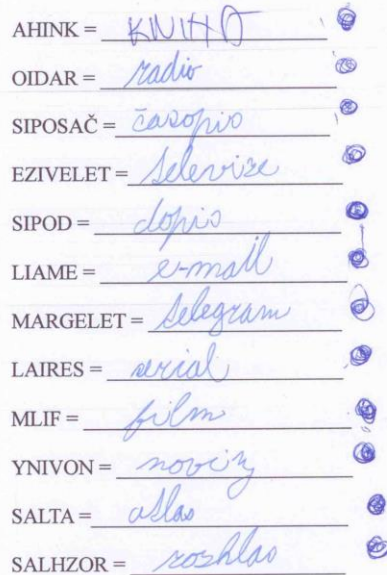 AHINK = KNIHA
OIDAR = radio
SIPOSAČ = časopis
EZIVELET = televize
SIPOD = dopis
LIAME = e-mail
MARGELET = telegram
LAIRES = serial
MLIF = film
YNIVON = noviny
SALTA = atlas
SALHZOR = rozhlas